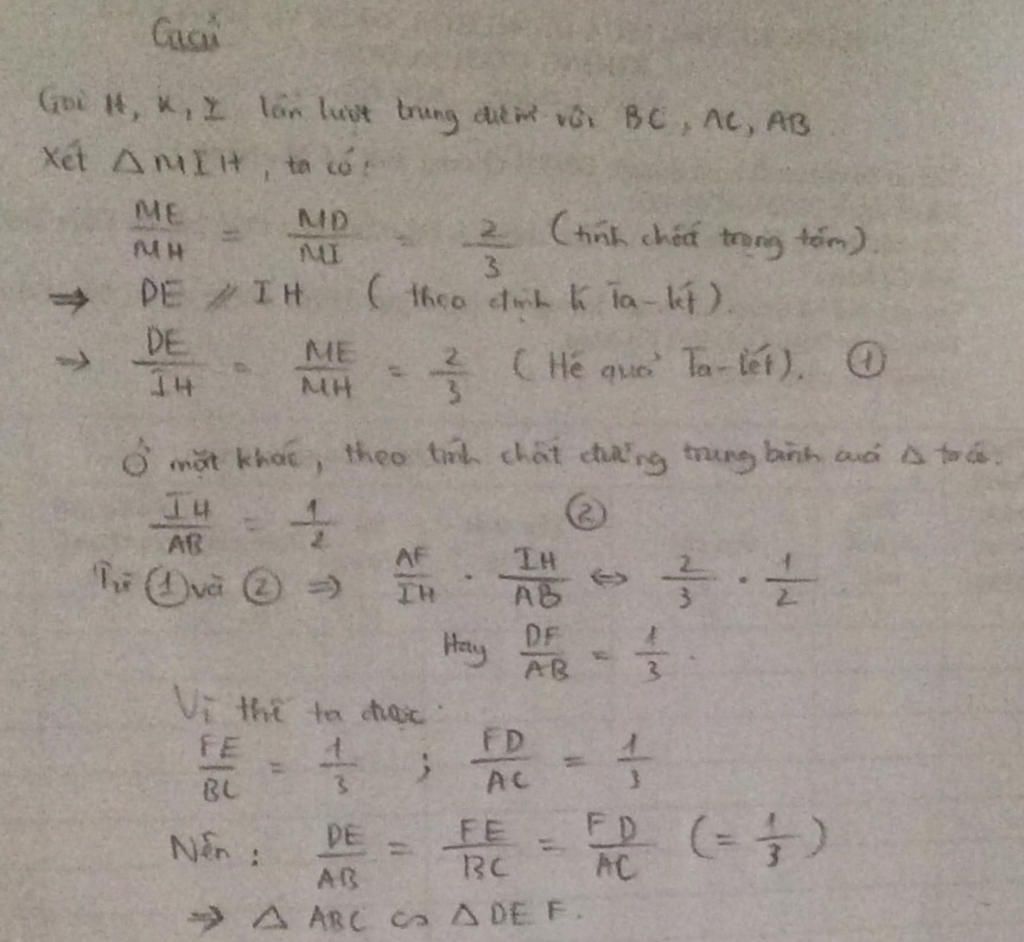 Giải
Gọi H, K, I lần lượt trung điểm với BC, AC, AB
Xét △MIH, ta có:
ME/MH = MD/MI = 2/3 (tính chất trọng tâm).
⇒ DE // IH (theo định lí Ta-lét).
→ DE/IH = ME/MH = 2/3 (Hệ quả Ta-lét). ①
Ở mặt khác, theo tính chất đường trung bình của △ ta có.
IH/AB = 1/2 ②
Từ ① và ② ⇒ AF/IH . IH/AB ⇔ 2/3 . 1/2
Hay DF/AB = 1/3.
Vì thế ta được:
FE/BC = 1/3 ; FD/AC = 1/3
Nên : DE/AB = FE/BC = FD/AC (= 1/3)
⇒ △ ABC ∽ △ DEF.